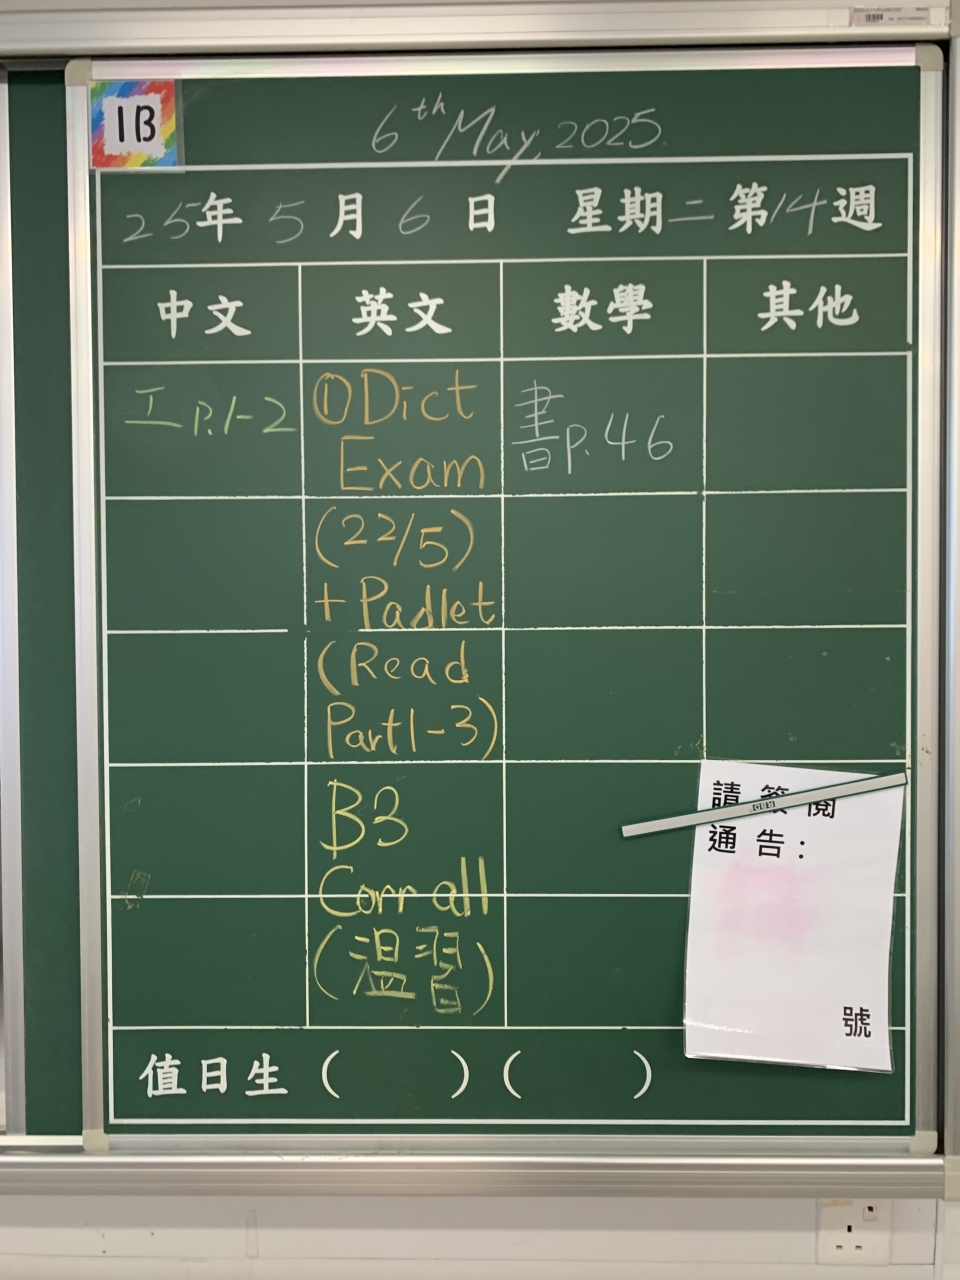 1B
6th May, 2025
25年 5月 6日 星期二 第14週
中文 英文 數學 其他
工 P.1-2
① Dict
Exam
(22/5)
+ Padlet
(Read
Part 1-3)
B3
Corr all
(溫習)
書 P.46
請簽閱
通告：
號
值日生 ( ) ( )